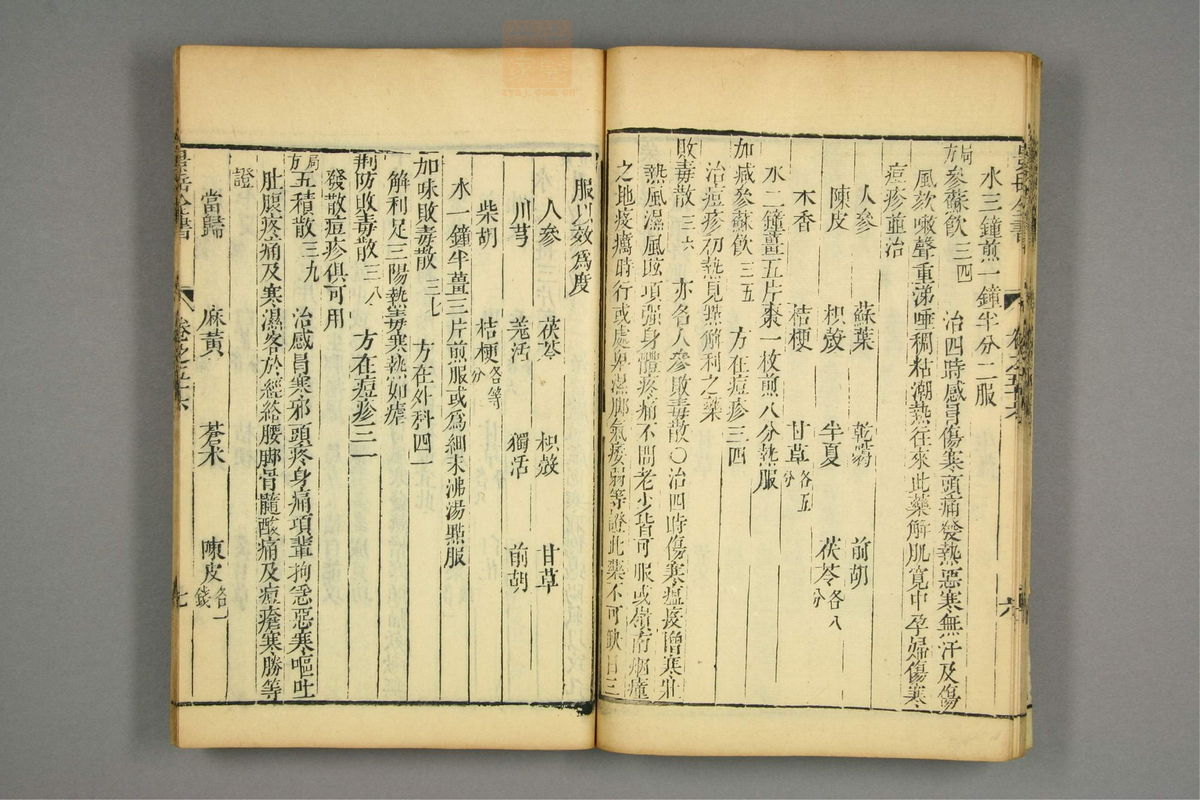 水三鐘煎一鐘半分二服
局方參蘇飲 三四 治四時感冒傷寒頭痛發熱惡寒無汗及傷
風欬嗽聲重涕唾稠粘潮熱往來此藥解肌寬中孕婦傷寒
痘疹並治
人參 蘇葉 乾葛 前胡
陳皮 枳殼 半夏 茯苓各八分
木香 桔梗 甘草各五分
水二鐘薑五片棗一枚煎八分熱服
加減參蘇飲 三五 方在痘疹三四
治痘疹初熱見點解利之藥
敗毒散 三六 亦名人參敗毒散○治四時傷寒瘟疫憎寒壯
熱風濕風眩項強身體疼痛不問老少皆可服或嶺南烟瘴
之地疫癘時行或處卑濕脚氣痿弱等證此藥不可缺日三
六
服以效爲度
人參 茯苓 枳殼 甘草
川芎 羗活 獨活 前胡
柴胡 桔梗各等分
水一鐘半薑三片煎服或爲細末沸湯點服
加味敗毒散 三七 方在外科四一
解利足三陽熱毒寒熱如瘧
荆防敗毒散 三八 方在痘疹三一
發散痘疹俱可用
局方五積散 三九 治感冒寒邪頭疼身痛項輩拘急惡寒嘔吐
肚腹疼痛及寒濕客於經絡腰脚骨髓酸痛及痘瘡寒勝等
證
當歸 麻黃 蒼术 陳皮各一錢
七